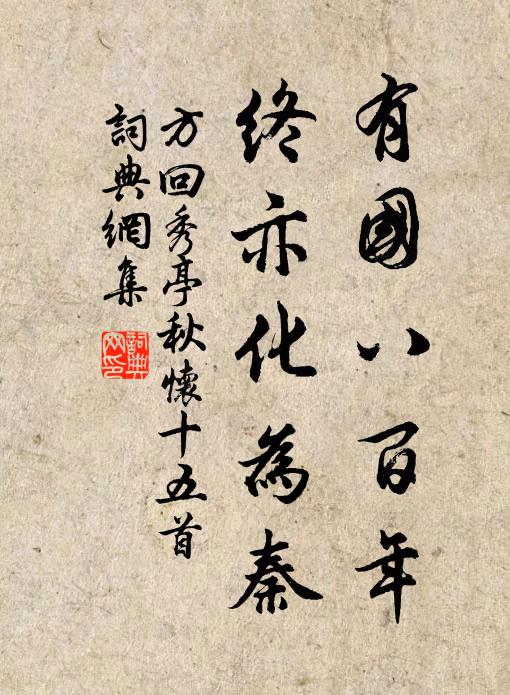 有國八百年
終亦化為秦
方回秀亭秋懷十五首
詞典網集
詞典網印